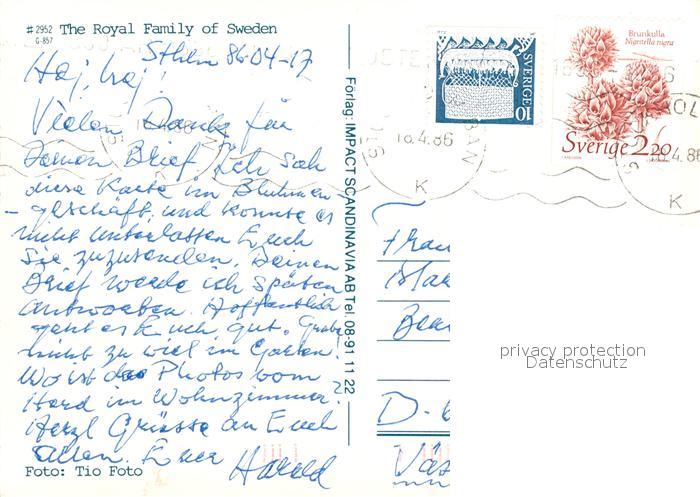 #2952 The Royal Family of Sweden
G-857
Sthlm 86-04-17
Hej, hej!
Vielen Dank für
Deinen Brief. Ich sah
diese Karte im Blumen-
-geschäft, und konnte es
nicht unterlassen Euch
Sie zuzusenden. Deinen
Brief werde ich später
antworten. Hoffentlich
geht es Euch gut. Grabe
nicht zu viel im Garten.
Wo ist das Photos vom
Herd im Wohnzimmer?
Herzl Grüsse an Euch
allen. Euer
Harald
Foto: Tio Foto
Förlag: IMPACT SCANDINAVIA AB Tel. 08-91 11 22
SVERIGE 10
Brunkulla
Nigritella nigra
Sverige 2.20
18.4.86
K
4.86
K
Frau
D-6
Väs
privacy protection
Datenschutz